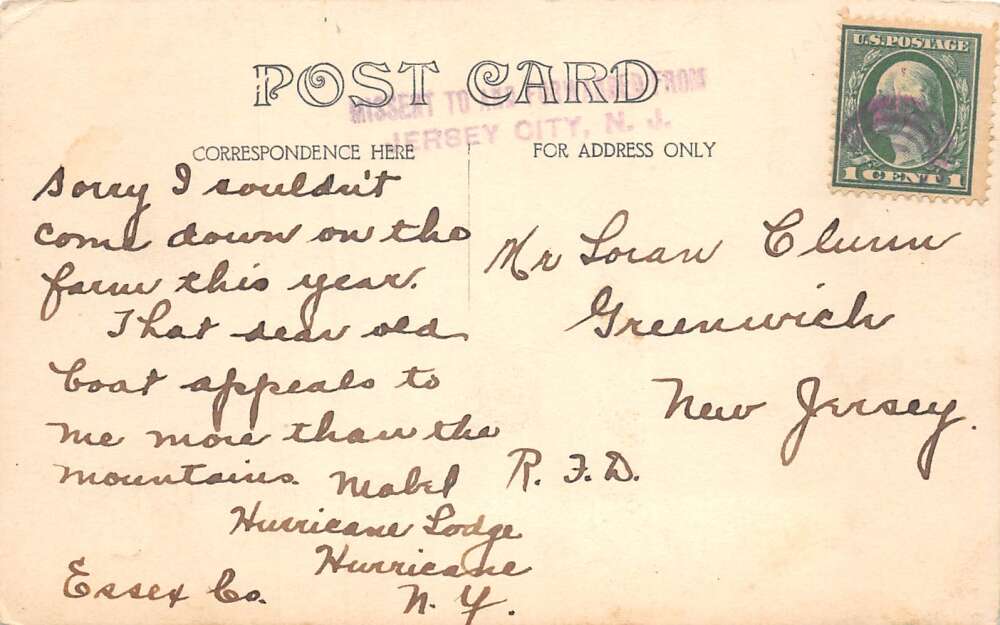 POST CARD
MISSENT TO AND FORWARDED FROM
JERSEY CITY, N. J.
U.S. POSTAGE
1 CENT 1
CORRESPONDENCE HERE
FOR ADDRESS ONLY
Sorry I couldn't
come down on the
farm this year.
That dear old
boat appeals to
me more than the
mountains. Mabel
Hurricane Lodge
Hurricane
Essex Co. N. Y.
Mr Loran Clunn
Greenwich
New Jersey.
R. F. D.